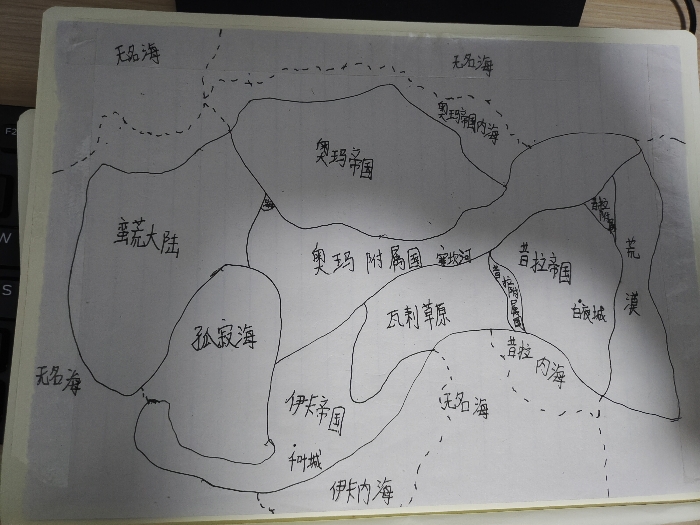 无名海
无名海
奥玛帝国内海
奥玛帝国
昔拉附属国
蛮荒大陆
奥玛附属国
塞坎河
昔拉帝国
荒漠
昔拉附属国
白夜城
瓦剌草原
孤寂海
昔拉内海
无名海
伊卡帝国
无名海
千叶城
伊卡内海